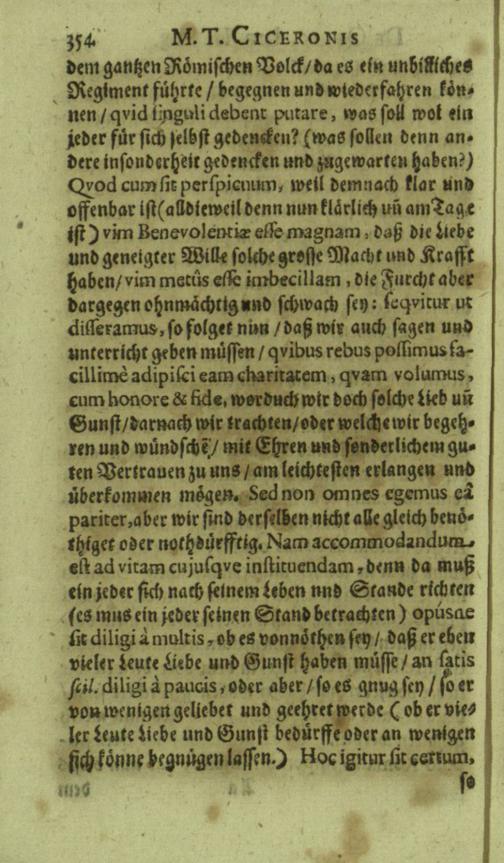 354 M. T. CICERONIS
dem gantzen Römischen Volck/da es ein unbilliches
Regiment führte/ begegnen und wiederfahren kön-
nen/qvid singuli debent putare, was soll wol ein
jeder für sich selbst gedencken? (was sollen denn an-
dere insonderheit gedencken und zugewarten haben?)
Qvod cum sit perspicuum, weil demnach klar und
offenbar ist (alldieweil denn nun klärlich uñ am Tage
ist) vim Benevolentiæ esse magnam, daß die Liebe
und geneigter Wille solche grosse Macht und Krafft
haben/vim metûs esse imbecillam, die Furcht aber
dargegen ohnmächtig und schwach sey: seqvitur ut
disseramus, so folget nun/ daß wir auch sagen und
unterricht geben müssen/qvibus rebus possimus fa-
cillimè adipisci eam charitatem, qvam volumus,
cum honore & fide, wordurch wir doch solche Lieb uñ
Gunst/darnach wir trachten/oder welche wir begeh-
ren und wündschẽ/ mit Ehren und sonderlichem gu-
ten Vertrauen zu uns/ am leichtesten erlangen und
überkommen mögen. Sed non omnes egemus eâ
pariter, aber wir sind derselben nicht alle gleich benö-
thiget oder nothdürfftig. Nam accommodandum
est ad vitam cujusqve instituendam, denn da muß
ein jeder sich nach seinem Leben und Stande richten
(es mus ein jeder seinen Stand betrachten) opúsne
sit diligi à multis, ob es vonnöthen sey/ daß er eben
vieler Leute Liebe und Gunst haben müsse/ an satis
scil. diligi à paucis, oder aber/ so es gnug sey/ so er
von wenigen geliebet und geehret werde (ob er vie-
ler Leute Liebe und Gunst bedürffe oder an wenigen
sich könne begnügen lassen.) Hoc igitur sit certum,
so